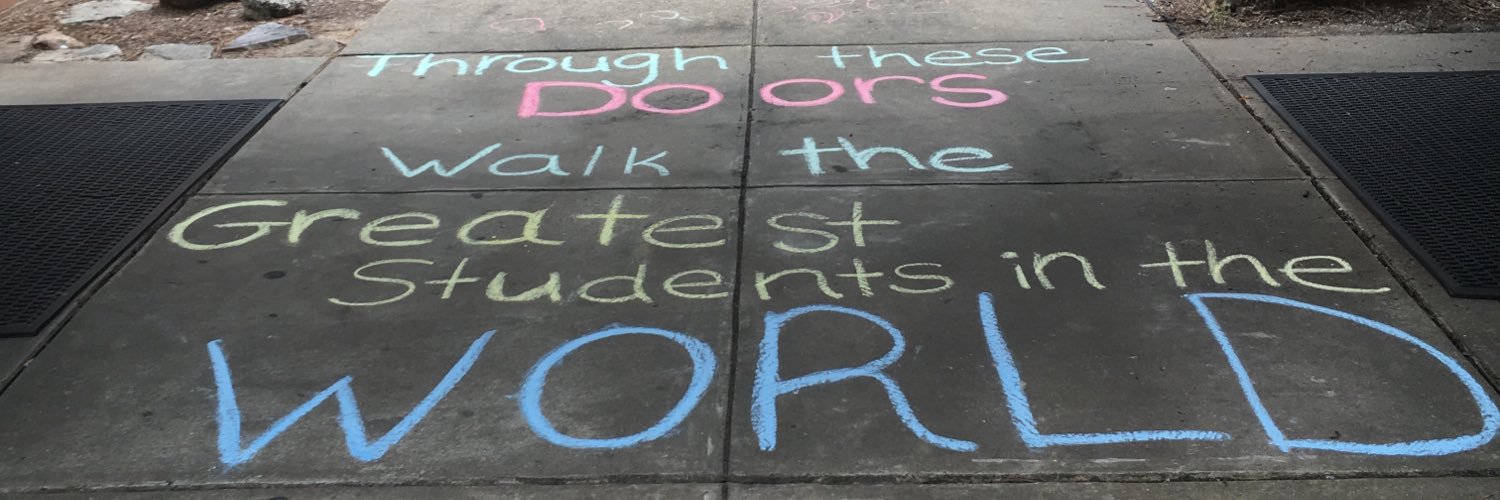 Through these
Doors
Walk the
Greatest
Students in the
WORLD